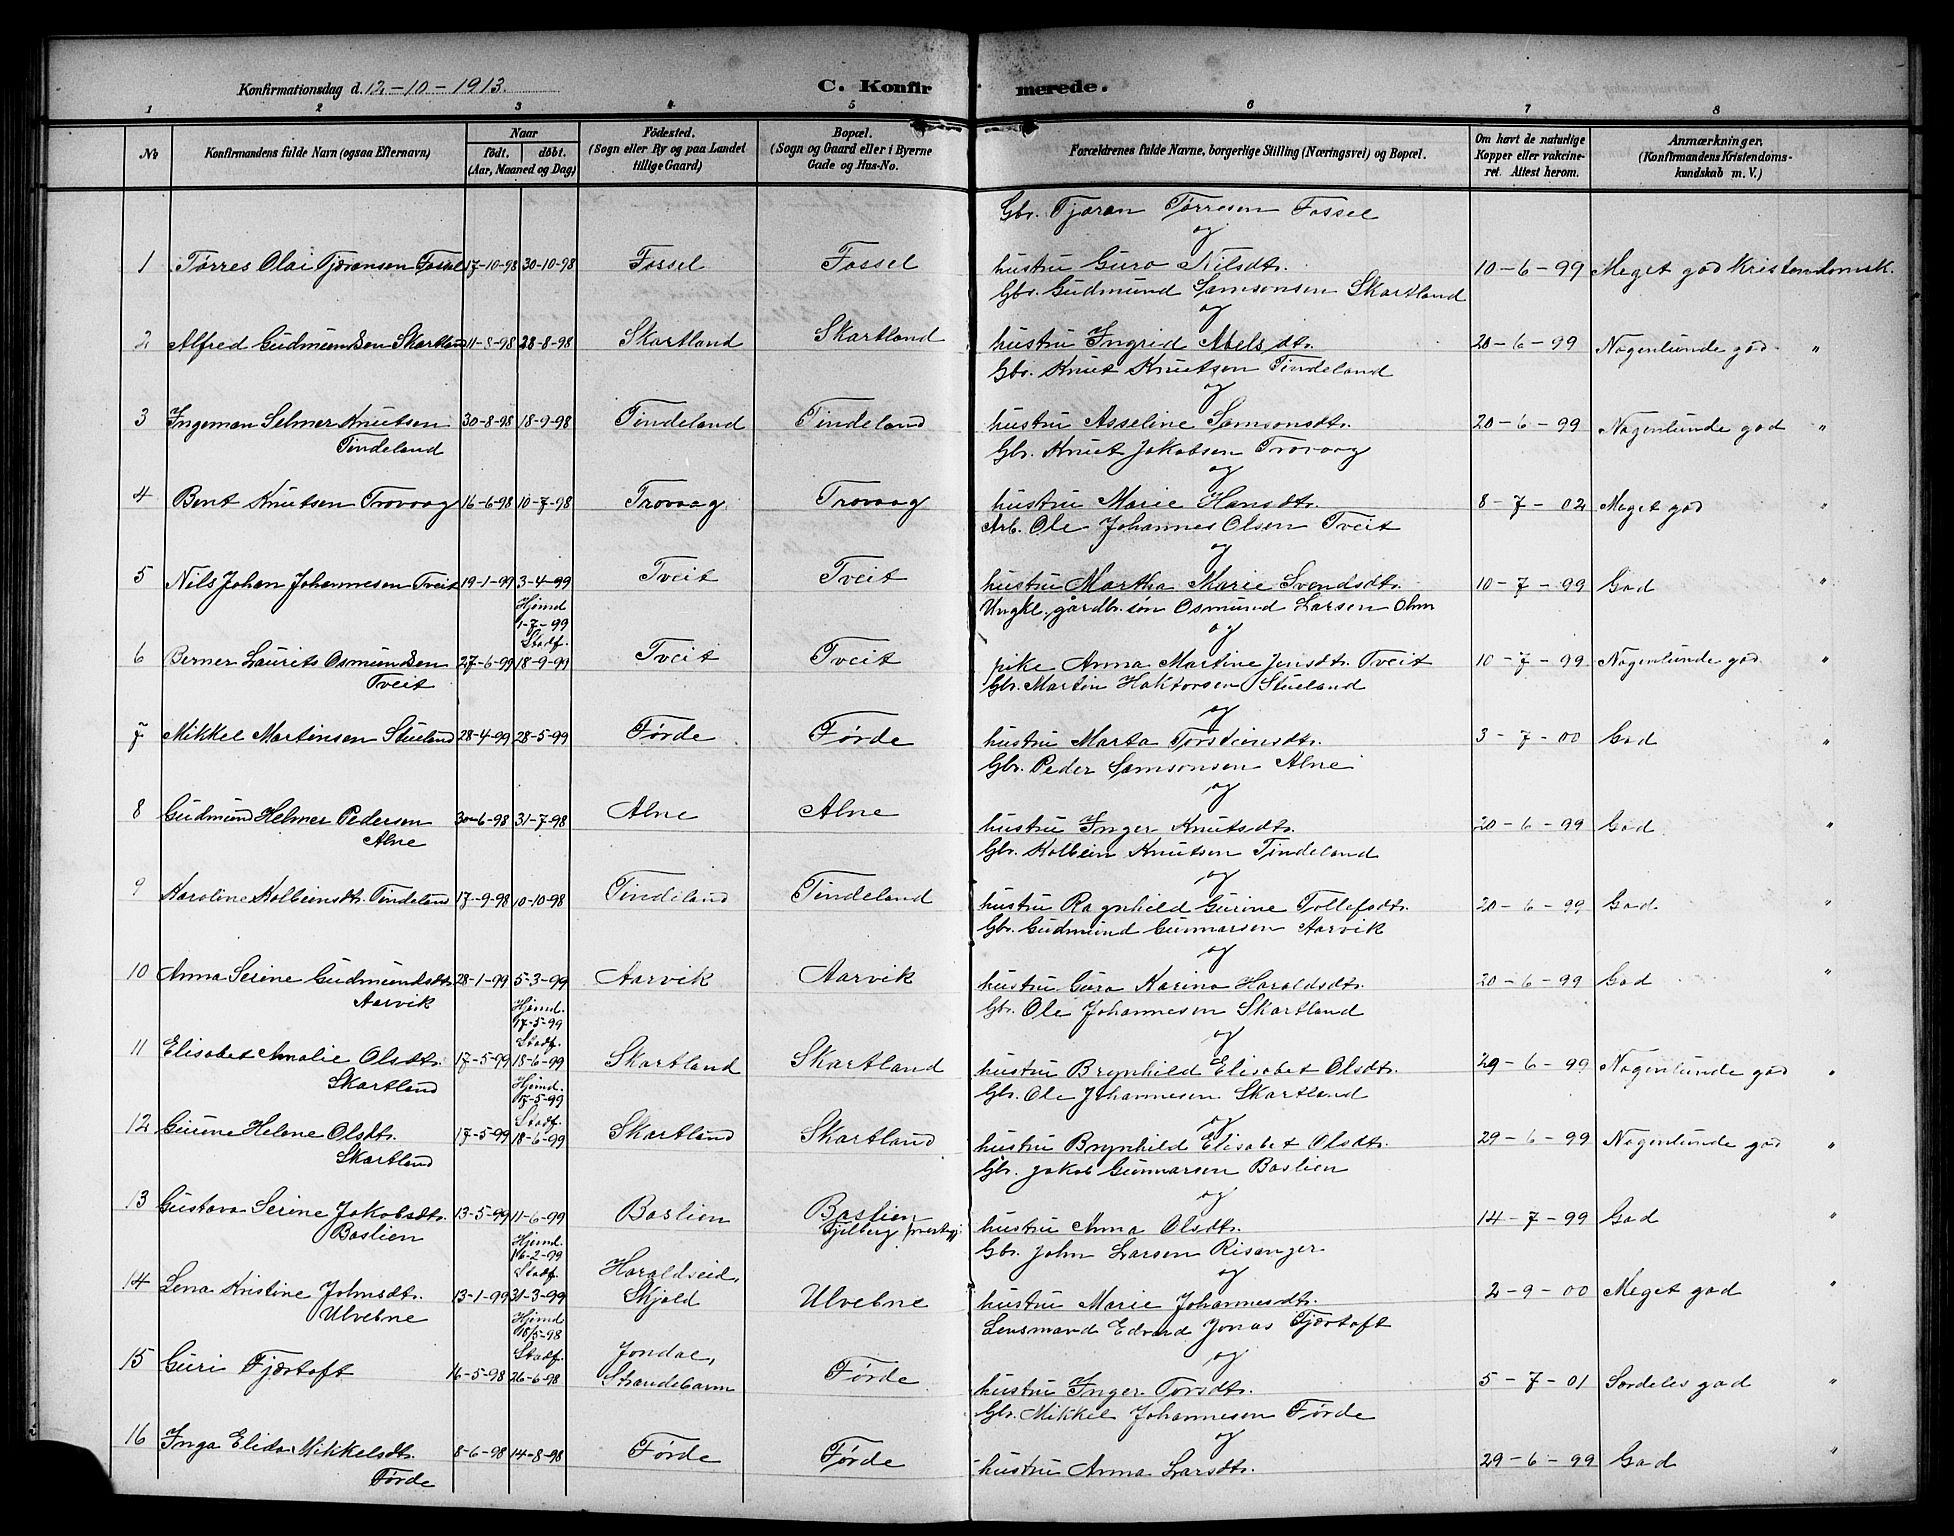 Konfirmationsdag d. 12-10-1913. C. Konfirmerede.
1 2 3 4 5 6 7 8
No Konfirmandens fulde Navn (ogsaa Efternavn) Naar født. døbt. (Aar, Maaned og Dag) Fødested. (Sogn eller By og paa Landet tillige Gaard) Bopæl. (Sogn og Gaard eller i Byerne Gade og Hus-No. Forældrenes fulde Navne, borgerlige Stilling (Næringsvei) og Bopæl. Om havt de naturlige Kopper eller vakcineret. Attest herom. Anmærkninger. (Konfirmandens Kristendomskundskab m. V.)
Gbr. Tjøran Tørresen Fossel
og
1 Tørres Olai Tjøransen Fossel 17-10-98 30-10-98 Fossel Fossel hustru Guro Nilsdtr. 10-6-99 Meget god Kristendomsk.
Gbr. Gudmund Samsonsen Skartland
og
2 Alfred Gudmundsen Skartland 11-8-98 28-8-98 Skartland Skartland hustru Ingrid Abelsdtr. 20-6-99 Nogenlunde god "
Gbr. Knut Knutsen Tindeland
og
3 Ingeman Selmer Knutsen 30-8-98 18-9-98 Tindeland Tindeland hustru Asseline Samsonsdtr. 20-6-99 Nogenlunde god "
Tindeland Gbr. Knut Jakobsen Trovaag
og
4 Bent Knutsen Trovaag 16-6-98 10-7-98 Trovaag Trovaag hustru Marie Hansdtr. 8-7-02 Meget god "
Arb. Ole Johannes Olsen Tveit
og
5 Nils Johan Johannesen Tveit 19-1-99 3-4-99 Tveit Tveit hustru Martha Marie Svendsdtr. 10-7-99 God "
Hjemd. Ungkl., gårdbr.søn Osmund Larsen Ohm
1-7-99 og
Stadf.
6 Berner Laurits Osmundsen 27-6-99 18-9-99 Tveit Tveit pike Anna Martine Jensdtr. Tveit 10-7-99 Nogenlunde god "
Tveit Gbr. Martin Haktorsen Stueland
og
7 Mikkel Martinsen Stueland 28-4-99 28-5-99 Førde Førde hustru Marta Torsteinsdtr. 3-7-00 God "
Gbr. Peder Samsonsen Alne
og
8 Gudmund Helmer Pedersen 30-6-98 31-7-98 Alne Alne hustru Inger Knutsdtr. 20-6-99 God "
Alne Gbr. Kolbein Knutsen Tindeland
og
9 Karoline Kolbeinsdtr. Tindeland 17-9-98 10-10-98 Tindeland Tindeland hustru Ragnhild Gurine Tollefsdtr. 20-6-99 God "
Gbr. Gudmund Gunnarsen Aarvik
og
10 Anna Serine Gudmundsdtr. 28-1-99 5-3-99 Aarvik Aarvik hustru Guro Karina Haraldsdtr. 20-6-99 God "
Aarvik Hjemd. Gbr. Ole Johannesen Skartland
17-5-99 og
Stadf.
11 Elisabet Amalie Olsdtr. 17-5-99 18-6-99 Skartland Skartland hustru Brynhild Elisabet Olsdtr. 29-6-99 Nogenlunde god "
Skartland Hjemd. Gbr. Ole Johannesen Skartland
17-5-99 og
Stadf.
12 Gurine Helene Olsdtr. 17-5-99 18-6-99 Skartland Skartland hustru Brynhild Elisabet Olsdtr. 29-6-99 Nogenlunde god "
Skartland Gbr. Jakob Gunnarsen Baslien
og
13 Gustava Serine Jakobsdtr. 13-5-99 11-6-99 Baslien Baslien hustru Anna Olsdtr. 14-7-99 God "
Baslien Hjemd. Fjelberg prestegj. Gbr. John Larsen Risanger
16-2-99 og
Stadf. Haraldseid,
14 Lena Kristine Johnsdtr. 13-1-99 31-3-99 Skjold Ulvebne hustru Marie Johannesdtr. 2-9-00 Meget god "
Ulvebne Hjemd. Lensmand Edvard Jonas Fjærtoft
18/5-98 og
Stadf. Jondal,
15 Guri Fjærtoft 16-5-98 26-6-98 Strandebarm Førde hustru Inger Torsdtr. 5-7-01 Særdeles god "
Gbr. Mikkel Johannesen Førde
og
16 Inga Elida Mikkelsdtr. 8-6-98 14-8-98 Førde Førde hustru Anna Larsdtr. 29-6-99 God "
Førde